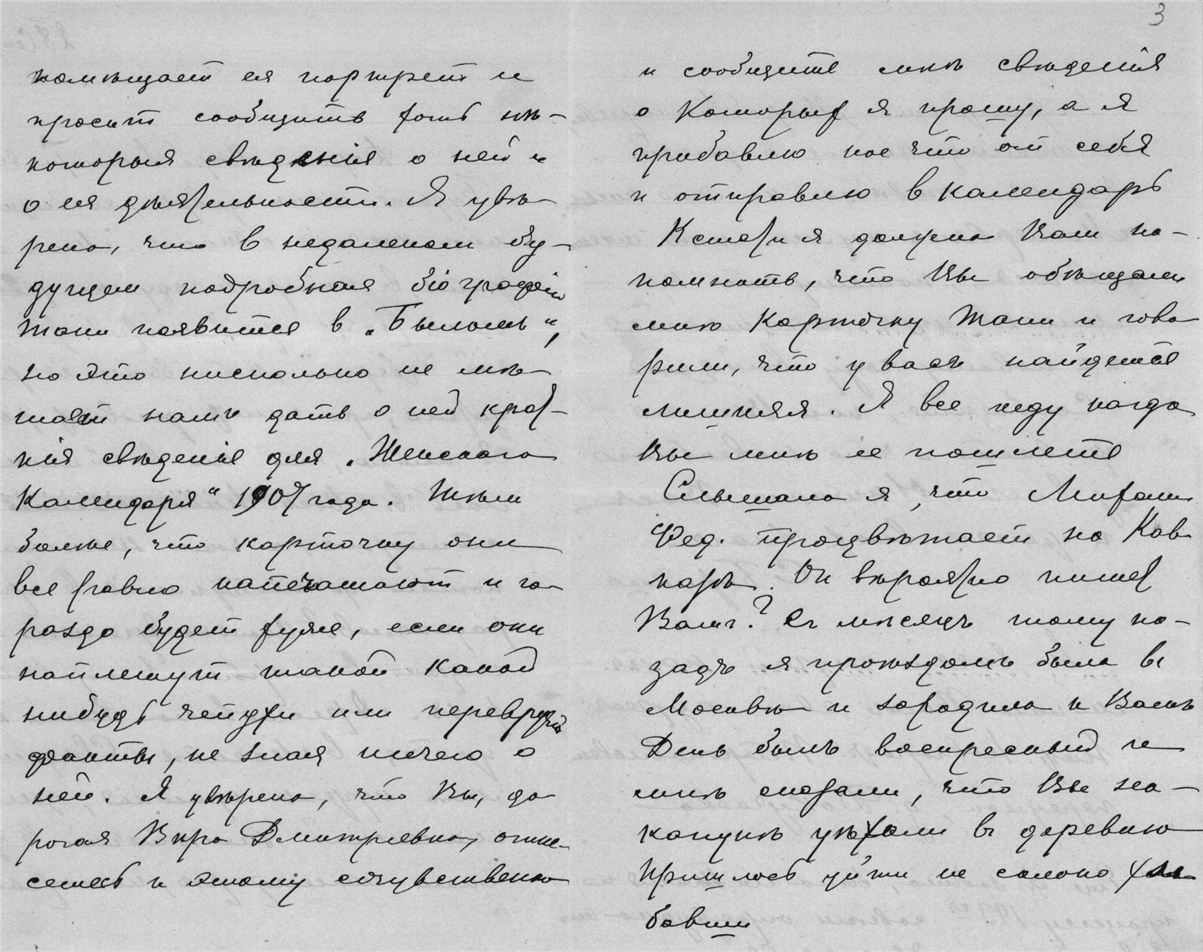 помѣщаетъ ея портретъ и
просятъ сообщить хоть нѣ-
которыя свѣдѣнія о ней и
о ея дѣятельности. Я увѣ
рена, что в недалеком бу-
дущем подробная біографія
Тани появится в „Быломъ“,
но это нисколько не мѣ
шаетъ намъ дать о ней крат-
кія свѣденія для „Женскаго
Календаря“ 1907 года. Тѣмъ
болѣе, что карточку они
все равно напечатают и го
раздо будет хуже, если они
наплетут такой какой
нибудь чепухи или переврутъ
факты, не зная ничего о
ней. Я увѣрена, что Вы, до
рогая Вѣра Дмитріевна, отне-
сетесь к этому сочувственно
3
и сообщите мнѣ свѣденія
о которых я прошу, а я
прибавлю кое что от себя
и отправлю в календарь
Кстати я должна Вам на-
помнить, что Вы обѣщали
мнѣ карточку Тани и гово
рили, что у васъ найдется
лишняя. Я все жду когда
Вы мнѣ ее пошлете
Слышала я, что Михаил
Фед. процвѣтает на Кав
казѣ. Он вѣроятно пишет
Вам? Съ мѣсяцъ тому на-
задъ я проѣздомъ была въ
Москвѣ и заходила к Вамъ
День былъ воскресный и
мнѣ сказали, что Вы на-
канунѣ уѣхали въ деревню
Пришлось уйти не солоно хле
бавши